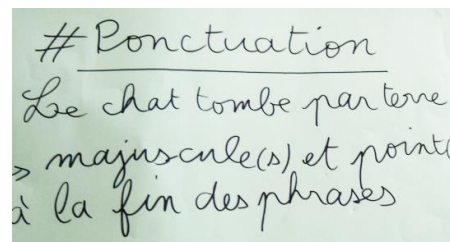 # Ponctuation
Le chat tombe par terre
> majuscule(s) et point(
à la fin des phrases